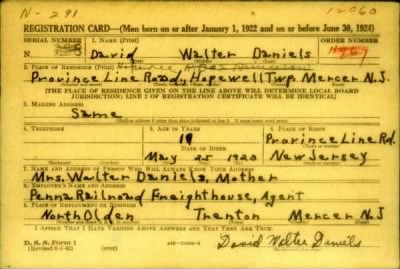 N-291
12060
REGISTRATION CARD—(Men born on or after January 1, 1922 and on or before June 30, 1924)
SERIAL NUMBER 1. NAME (Print) ORDER NUMBER
N David Walter Daniels
2. PLACE OF RESIDENCE (Print)
Province Line Road, Hopewell Twp. Mercer N.J.
[THE PLACE OF RESIDENCE GIVEN ON THE LINE ABOVE WILL DETERMINE LOCAL BOARD
JURISDICTION; LINE 2 OF REGISTRATION CERTIFICATE WILL BE IDENTICAL]
3. MAILING ADDRESS
Same
4. TELEPHONE 5. AGE IN YEARS 6. PLACE OF BIRTH
Province Line Rd.
DATE OF BIRTH
May 25 1923 New Jersey
7. NAME AND ADDRESS OF PERSON WHO WILL ALWAYS KNOW YOUR ADDRESS
Mrs. Walter Daniels, Mother
8. EMPLOYER'S NAME AND ADDRESS
Penna Railroad Freighthouse, Agent
9. PLACE OF EMPLOYMENT OR BUSINESS
North Olden Trenton Mercer N.J
I AFFIRM THAT I HAVE VERIFIED ABOVE ANSWERS AND THAT THEY ARE TRUE.
D. S. S. Form 1
David Walter Daniels
(Revised 6-1-42)